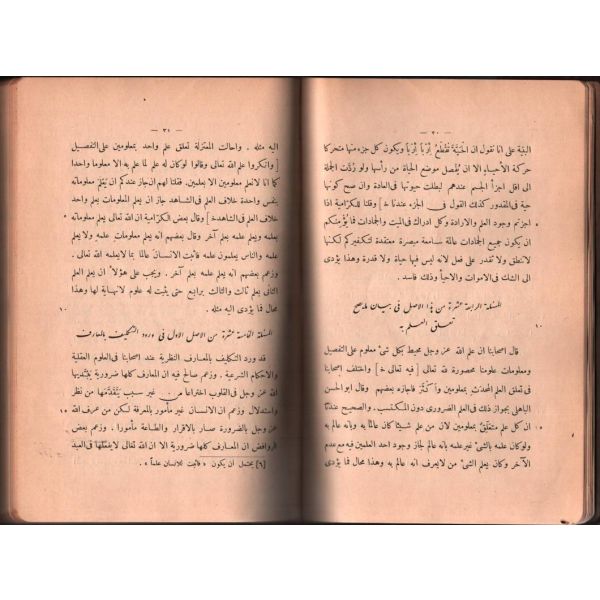 — ٣٠ —
البنية على انا نقول ان الحَيَّةَ تَقْطَعُ إِرْبًا إِرْبًا ويكون كل جزء منها متحركا
حركة الأحياء الا ان يُفْصَل موضع الحياة من رأسها ولو رُدَّت الجملة
الى اقل اجزآ الجسم عندهم لبطلت حيوتها فى العادة وان صح كونها
حية فى المقدور كذلك القول فى الجزء عندنا ] وقلنا للكرّامية اذا
اجزتم وجود العلم والارادة وكل ادراك فى الميت والجمادات فما يُؤْمِنكم
ان يكون جميع الجمادات عالمة سامعة مبصرة معتقدة لتكفيركم لكنها
لا تنطق ولا تقدر على فعل لانه ليس فيها حياة ولا قدرة وهذا يؤدى
الى الشك فى الاموات والاحيآ وذلك فاسد .
المسئلة الرابعة عشرة من هذا الاصل فى بيان ما يصح
تعلق العلم به
١٠
قال اصحابنا ان علم الله عز وجل محيط بكل شئ معلوم على التفصيل
ومعلومات علومنا محصورة لله تعالى ] واختلف اصحابنا
فى تعلق العلم المحدَث بمعلومين وَأَكْثَرَ فاجازه بعضهم وقال ابو الحسن
الباهلى بجواز ذلك فى العلم الضرورى دون المكتسب . والصحيح عندنا
ان كل علم متعلِّق بمعلومين لان من علم شيئا كان عالما به وبانه عالم به
ولو كان علمه بالشئ غير علمه بانه عالم به لجاز وجود احد العلمين فيه مع عدم
الآخر وكان يعلم الشئ من لا يعرف انه عالم به وهذا محال فما يؤدى
— ٣١ —
اليه مثله . واحالت المعتزلة تعلق علم واحد بمعلومين على التفصيل
[ وانكروا علم الله تعالى وقالوا لو كان له علم لما علم به الا معلوما واحدا
كما انا لا نعلم معلومين الا بعلمين . فقلنا لهم ان جاز عندكم ان يَعْلَم معلوماته
بنفس واحدة خلاف العلم فى الشاهد جاز ان يعلم معلومات بعلم واحد
خلاف العلم فى الشاهد ] وقال بعض الكرّامية ان الله تعالى يعلم معلوماته
٥
بعلمه ويعلم علمه بعلم آخر وقال بعضهم انه يعلم معلومات علمه ولا يعلم
علمه والناس يعلمون علمه فاثبت الانسان عالما بما لا يعلمه الله تعالى .
وزعم بعضهم انه يعلم علمه بعلم آخر . ويجب على هؤلا ان يعلم العلم
الثانى بعلم ثالث والثالث برابع حتى يثبت له علوم لا نهاية لها وهذا
محال فما يؤدى اليه مثله .
١٠
المسئلة الخامسة عشرة من الاصل الاول فى ورود التكليف بالمعارف
قد ورد التكليف بالمعارف النظرية عند اصحابنا فى العلوم العقلية
والاحكام الشرعية . وزعم صالح فيه ان المعارف كلها ضرورية يبتديها
الله عز وجل فى القلوب اختراعا من غير سبب يَتَقَدَّمُها من نظر
واستدلال وزعم ان الانسان غير مأمور بالمعرفة لكن من عرف الله
١٥
عز وجل بالضرورة صار بالاقرار والطاعة مأمورا . وزعم بعض
الروافض ان المعارف كلها ضرورية الا ان الله تعالى لا يفعلها فى العبد
[٦] يحتمل ان يكون « فاثبت للانسان علماً » .